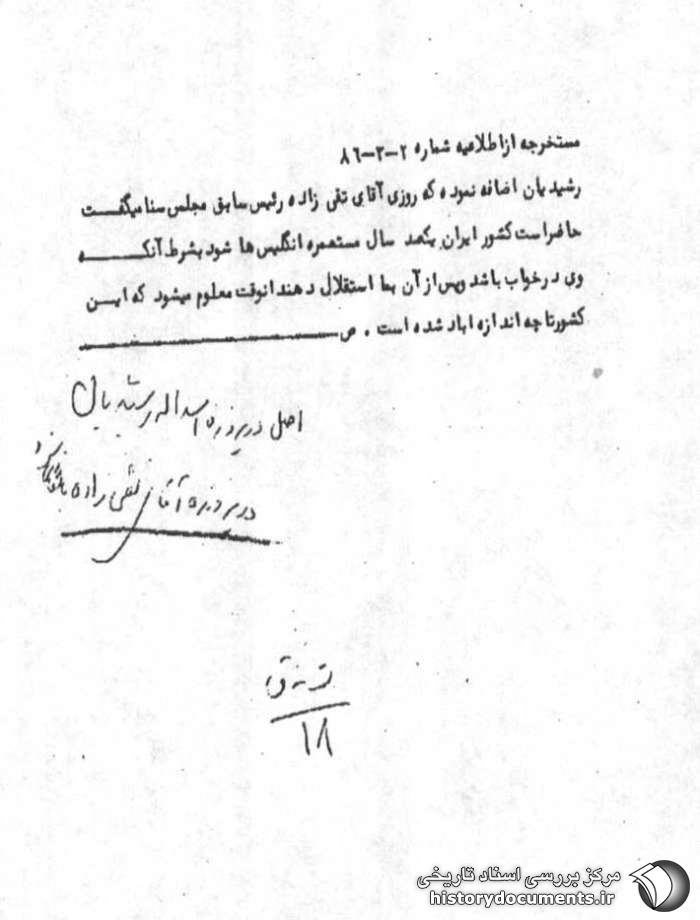 مستخرجه ازاطلاعیه شماره ۲-۳-۸۶
رشیدیان اضافه نموده که روزی آقای تقی زاده رئیس سابق مجلس سنا میگفت
حاضراست کشور ایران یکصد سال مستعمره انگلیس ها شود بشرط آنکه
وی درخواب باشد وپس از آن بما استقلال دهند انوقت معلوم میشود که این
کشورتاچه اندازه اباد شده است . ص
اصل در پرونده اسداله رشیدیان
در پرونده آقای تقی زاده
۱۸
مرکز بررسی اسناد تاریخی
historydocuments.ir